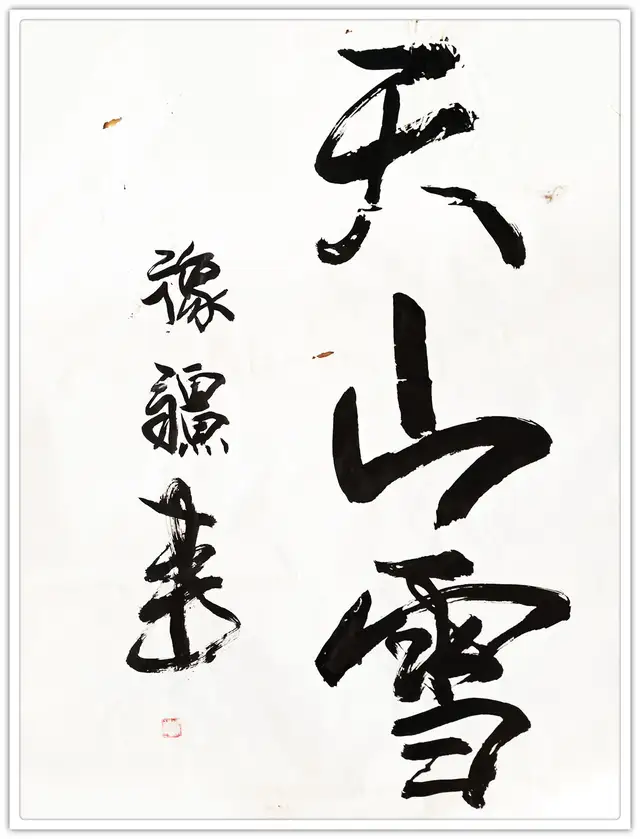 天山雪
豫疆書